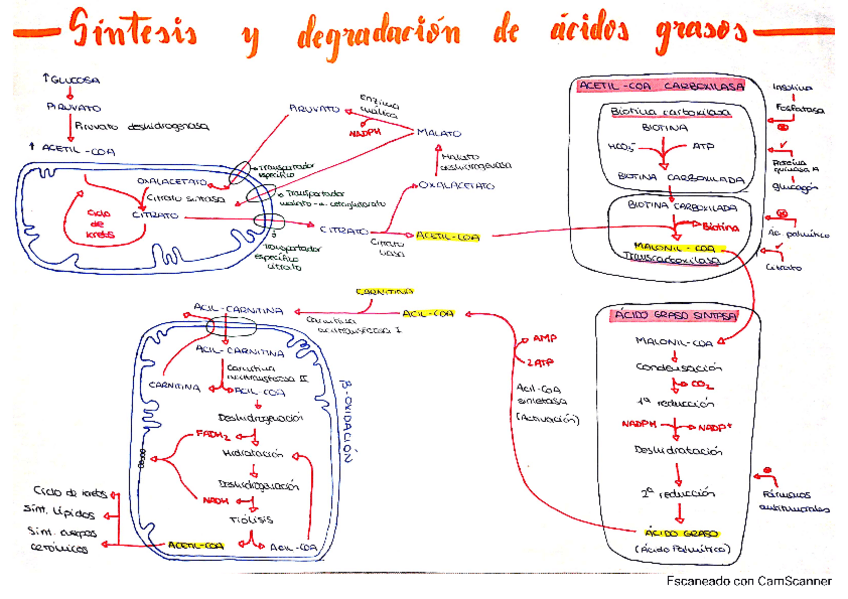 Síntesis y degradación de ácidos grasos
↑GLUCOSA
PIRUVATO
Piruvato deshidrogenasa
↑ ACETIL-COA
OXALACETATO
Citrato sintasa
CITRATO
Ciclo
de
krebs
PIRUVATO
Enzima
málica
NADPH
MALATO
Malato
deshidrogenasa
OXALACETATO
Transportador
específico
Transportador
malato-α-cetoglutarato
Transportador
específico
citrato
CITRATO
Citrato
liasa
ACETIL-COA
ACETIL-COA CARBOXILASA
Biotina carboxilasa
BIOTINA
HCO₃⁻
ATP
BIOTINA CARBOXILADA
BIOTINA CARBOXILADA
Biotina
MALONIL-COA
Transcarboxilasa
Insulina
Fosfatasa
Proteína
quinasa A
glucagón
Ác. palmítico
Citrato
ÁCIDO GRASO SINTASA
MALONIL-COA
Condensación
CO₂
1ª reducción
NADPH
NADP⁺
Deshidratación
2ª reducción
ÁCIDO GRASO
(Ácido Palmítico)
Fármacos
antitumorales
AMP
2ATP
Acil-CoA
sintetasa
(Activación)
CARNITINA
ACIL-COA
Carnitina
aciltransferasa I
ACIL-CARNITINA
ACIL-CARNITINA
Carnitina
aciltransferasa II
CARNITINA
ACIL-COA
Deshidrogenación
FADH₂
Hidratación
Deshidrogenación
NADH
Tiólisis
ACETIL-COA
ACIL-COA
β-OXIDACIÓN
Ciclo de krebs
Sínt. lípidos
Sínt. cuerpos
cetónicos
Escaneado con CamScanner